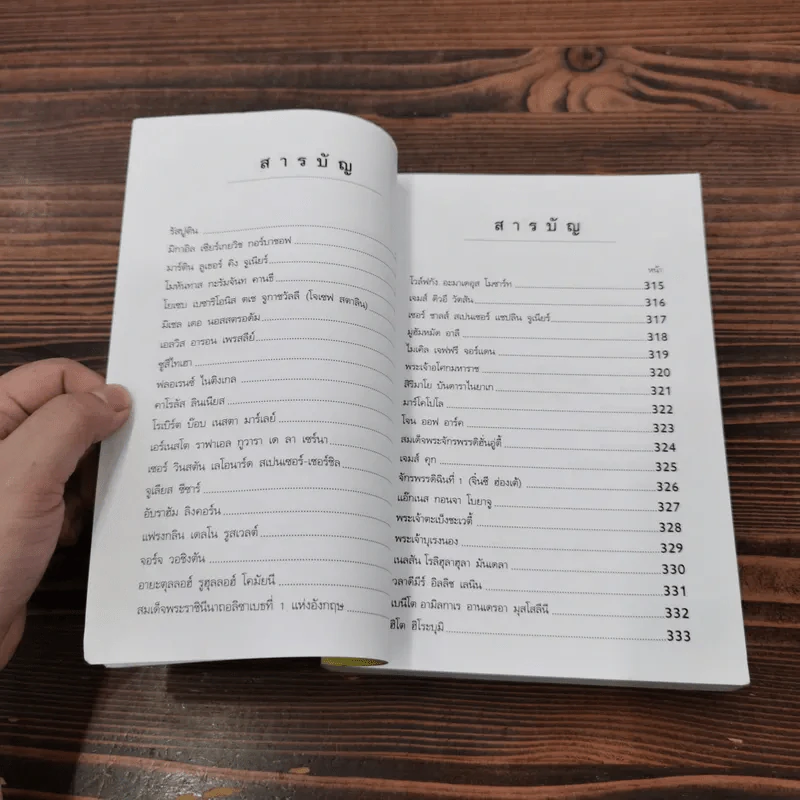 สารบัญ
รัสปูติน
มิกาอิล เซียร์เกยวิช กอร์บาชอฟ
มาร์ติน ลูเธอร์ คิง จูเนียร์
โมหันทาส กะรัมจันท คานธี
โยเซบ เบซารีโอนิส ดเซ จูกาชวัลลี (โจเซฟ สตาลิน)
มิเชล เดอ นอสสตรอดัม
เอลวิส อารอน เพรสลีย์
ซูสีไทเฮา
ฟลอเรนซ์ ไนติงเกล
คาโรลัส ลินเนียส
โรเบิร์ต บ๊อบ เนสตา มาร์เลย์
เอร์เนสโต ราฟาเอล กูวารา เด ลา เซร์นา
เซอร์ วินสตัน เลโอนาร์ด สเปนเซอร์-เชอร์ชิล
จูเลียส ซีซาร์
อับราฮัม ลิงคอร์น
แฟรงกลิน เดลโน รูสเวลต์
จอร์จ วอชิงตัน
อายะตุลลอฮ์ รูฮุลลอฮ์ โคมัยนี
สมเด็จพระราชินีนาถอลิซาเบธที่ 1 แห่งอังกฤษ
สารบัญ
หน้า
โวล์ฟกัง อะมาเดอุส โมซาร์ท 315
เจมส์ ดิวอี วัตสัน 316
เซอร์ ชาลส์ สเปนเซอร์ แชปลิน จูเนียร์ 317
มูฮัมหมัด อาลี 318
ไมเคิล เจฟฟรี จอร์แดน 319
พระเจ้าอโศกมหาราช 320
สิริมาโว บันดาราไนยาเก 321
มาร์โคโปโล 322
โจน ออฟ อาร์ค 323
สมเด็จพระจักรพรรดิฮั่นอู่ตี้ 324
เจมส์ คุก 325
จักรพรรดิฉินที่ 1 (จิ๋นซี ฮ่องเต้) 326
แอ๊กเนส กอนจา โบยาจู 327
พระเจ้าตะเบ็งชะเวตี้ 328
พระเจ้าบุเรงนอง 329
เนลสัน โรลีฮลาฮลา มันเดลา 330
วลาดีมีร์ อิลลิช เลนิน 331
เบนีโต อามิลกาเร อานเดรอา มุสโสลีนี 332
ฮิโต ฮิโระบุมิ 333